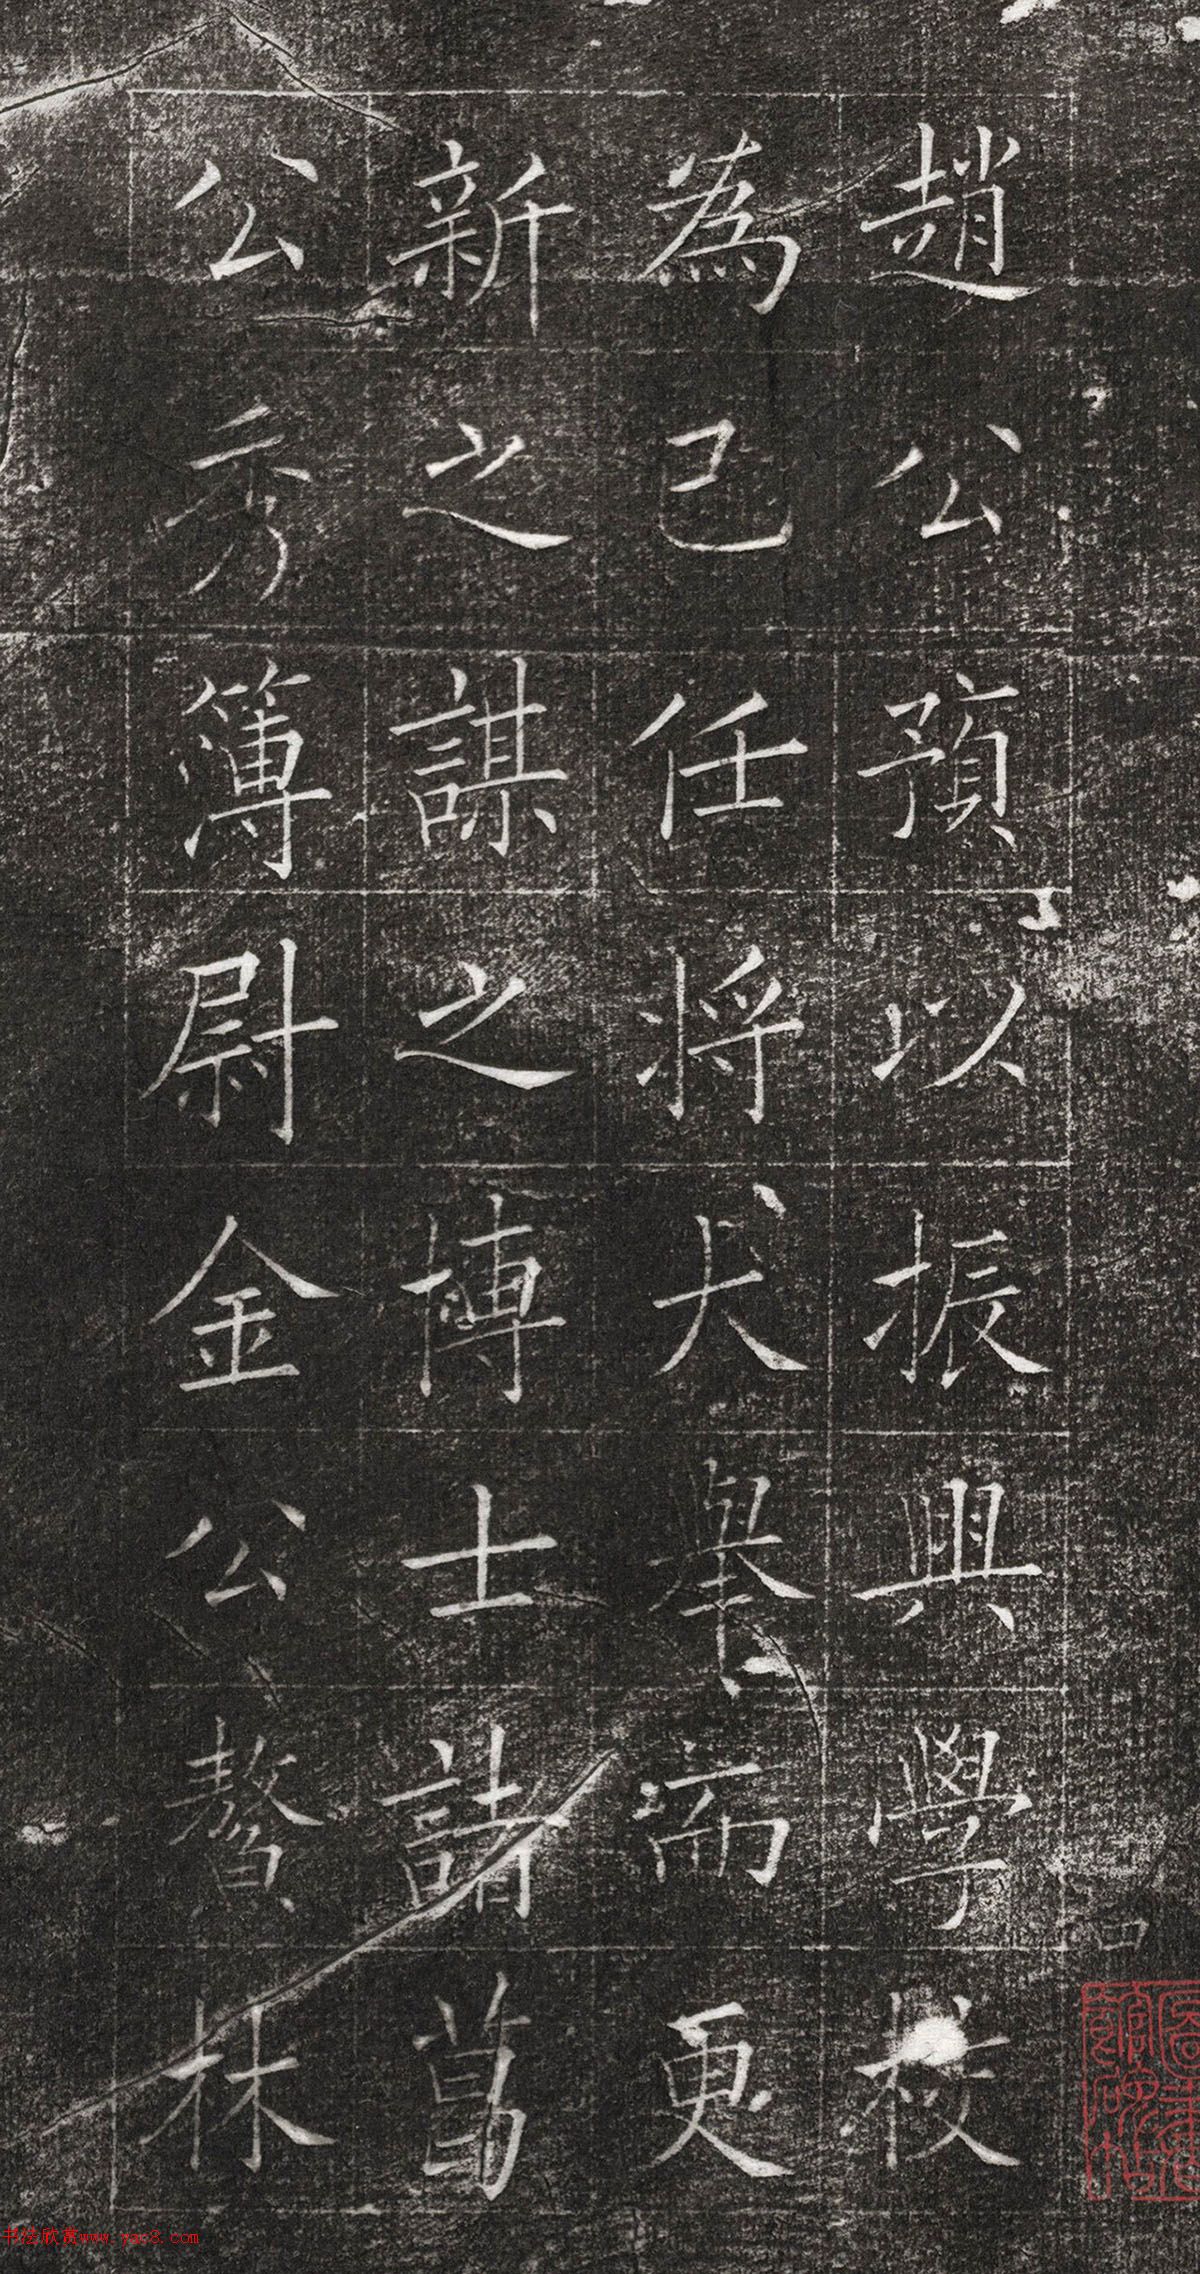 趙公預以振興學校
為己任將大舉而更
新之謀之博士諸葛
公秀簿尉金公鰲林
书法欣赏www.yac8.com